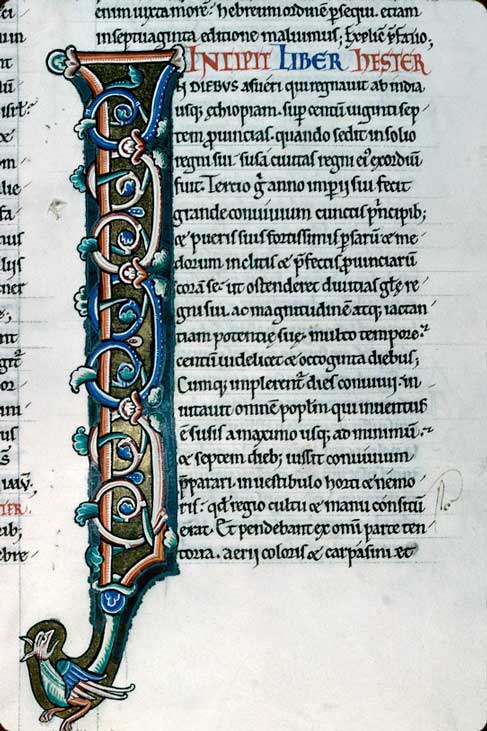 enim iuxta morē hebreum ordinē p̄sequi. etiam
in septuaginta editione maluimus; Explic̄ p̄fatio;
INCIPIT LIBER HESTER
N DIEBUS asueri qui regnauit ab india
usq; ęthiopiam. sup centū uiginti sep
tem prouincias. quando sedit in solio
regni sui. susa ciuitas regni ei' exordiū
fuit. Tercio g̊ anno imperii sui fecit
grande conuiuium cunctis p̄ncipib;
& pueris suis fortissimis p̄sarū & me
dorum inclitis & p̄fectis prouinciarū
corā se. ut ostenderet diuitias glę re
gni sui. ac magnitudinē atq; iactan
tiam potentię suę. multo tempore.
centū uidelicet & octoginta diebus;
Cumq; implerent̄ dies conuiuii. in
uitauit omnē poplm qui inuentus
ē susis a maximo usq; ad minimū.
& septem dieb; iussit conuiuium
p̄parari. in uestibulo horti & nemo
ris. qd regio cultu & manu consitū
erat. Et pendebant ex omni parte ten
toria. aerii coloris & carpasini. et